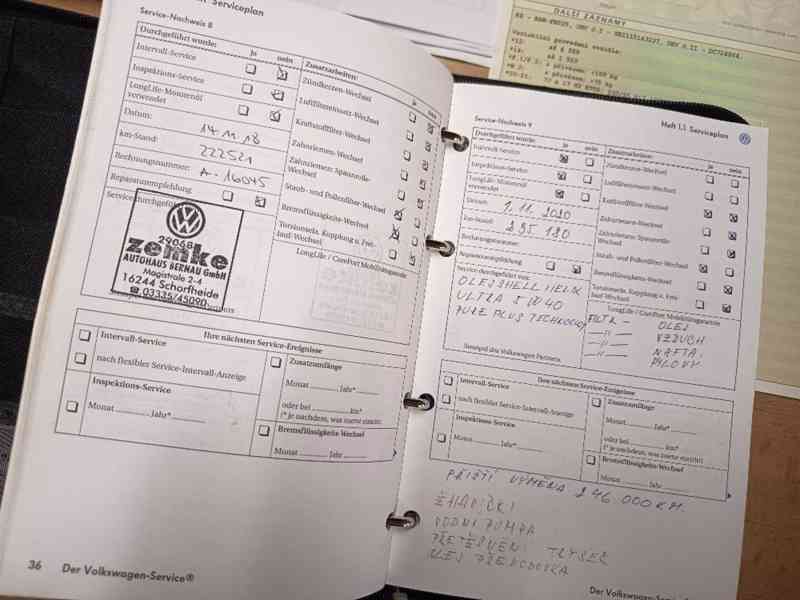 Serviceplan
Service-Nachweis 8
Durchgeführt wurde: Ja nein
Intervall-Service
Inspektions-Service
LongLife-Motorenöl
verwendet
Datum: 14 11 18
km-Stand: 222521
Rechnungsnummer: A-16045
Reparaturempfehlung
Service durchgeführt
Zusatzarbeiten: ja nein
Zündkerzen-Wechsel
Luftfiltereinsatz-Wechsel
Kraftstofffilter-Wechsel
Zahnriemen-Wechsel
Zahnriemen-Spannrolle-
Wechsel
Staub- und Pollenfilter-Wechsel
Bremsflüssigkeits-Wechsel
LongLife / Comfort Mobilitätsgarantie
29068
zemke
AUTOHAUS BERNAU GmbH
Magistrale 2-4
16244 Schorfheide
☎ 03335/45090
Ihre nächsten Service-Ereignisse
Intervall-Service
nach flexibler Service-Intervall-Anzeige
Inspektions-Service
Monat Jahr*
Zusatzumfänge
Monat Jahr*
oder bei km*
(* je nachdem, was zuerst eintritt)
Bremsflüssigkeits-Wechsel
Monat Jahr
36 Der Volkswagen-Service®
DALŠÍ ZÁZNAMY
Service-Nachweis 9
Heft 1.1 Serviceplan
Durchgeführt wurde: ja nein
Intervall-Service
Inspektions-Service
LongLife-Motorenöl
verwendet
Datum: 1.11.2020
km-Stand: 235 180
Rechnungsnummer:
Reparaturempfehlung
Service durchgeführt von:
OLEJ SHELL HELIX
ULTRA 5W40
PURE PLUS TECHNOLOGY
Stempel des Volkswagen Partners
Zusatzarbeiten: ja nein
Zündkerzen-Wechsel
Luftfiltereinsatz-Wechsel
Kraftstofffilter-Wechsel
Zahnriemen-Wechsel
Zahnriemen-Spannrolle-
Wechsel
Staub- und Pollenfilter-Wechsel
Bremsflüssigkeits-Wechsel
LongLife / Comfort Mobilitätsgarantie
FILTR - OLEJ
—//— VZDUCH
—//— NAFTA
—//— PYLOVÝ
Ihre nächsten Service-Ereignisse
Intervall-Service
nach flexibler Service-Intervall-Anzeige
Inspektions-Service
Monat Jahr*
Zusatzumfänge
Monat Jahr*
oder bei km*
(* je nachdem, was zuerst eintritt)
Bremsflüssigkeits-Wechsel
Monat Jahr
PŘÍŠTÍ VÝMĚNA 246 000 KM.
ŽHAVIČKI
VODNÍ PUMPA
Der Volkswagen-